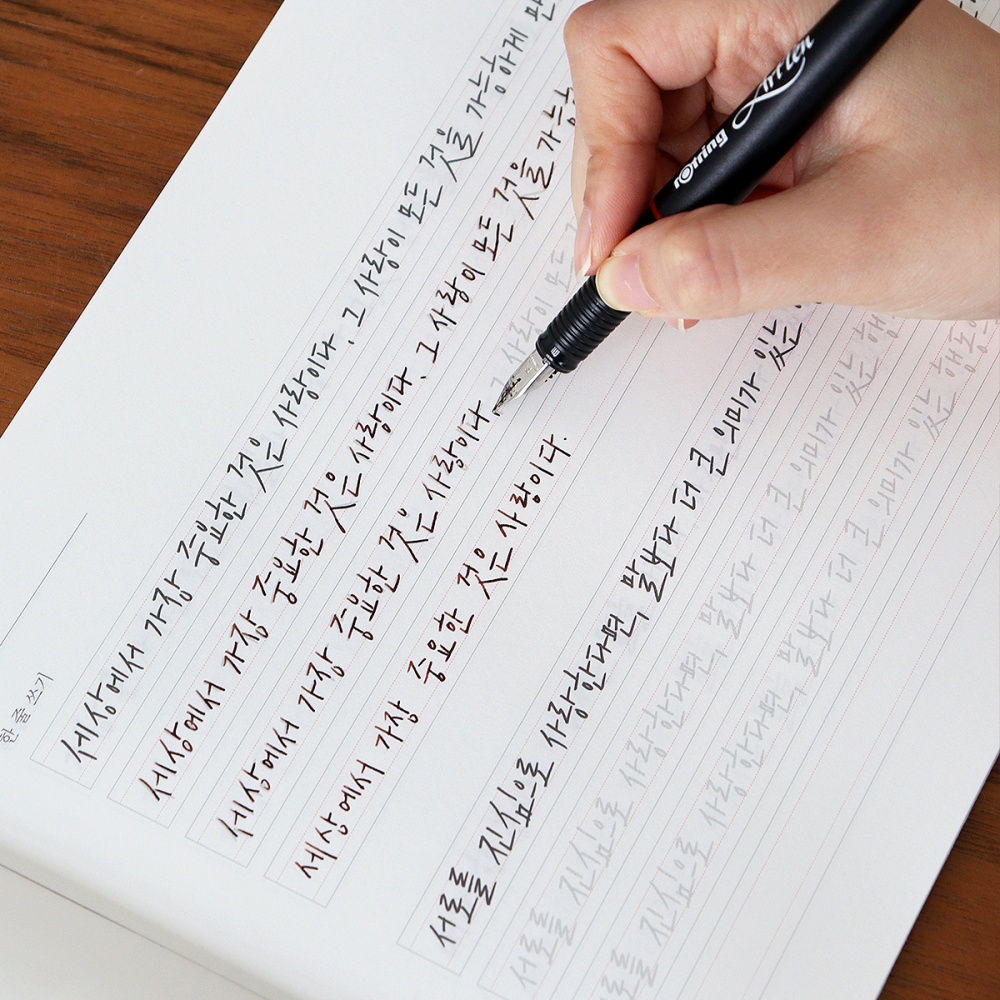 한 줄 쓰기
세상에서 가장 중요한 것은 사랑이다. 그 사랑이 모든 것을 가능하게
세상에서 가장 중요한 것은 사랑이다. 그 사랑이 모든 것을 가능
세상에서 가장 중요한 것은 사랑이다. 그 사랑이 모든
세상에서 가장 중요한 것은 사랑이다.
서로를 진심으로 사랑한다면, 말보다 더 큰 의미가 있는
서로를 진심으로 사랑한다면, 말보다 더 큰 의미가 있는 행
서로를 진심으로 사랑한다면, 말보다 더 큰 의미가 있는 행동
rotring
ArtPen